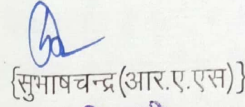 {सुभाषचन्द्र(आर.ए.एस)}